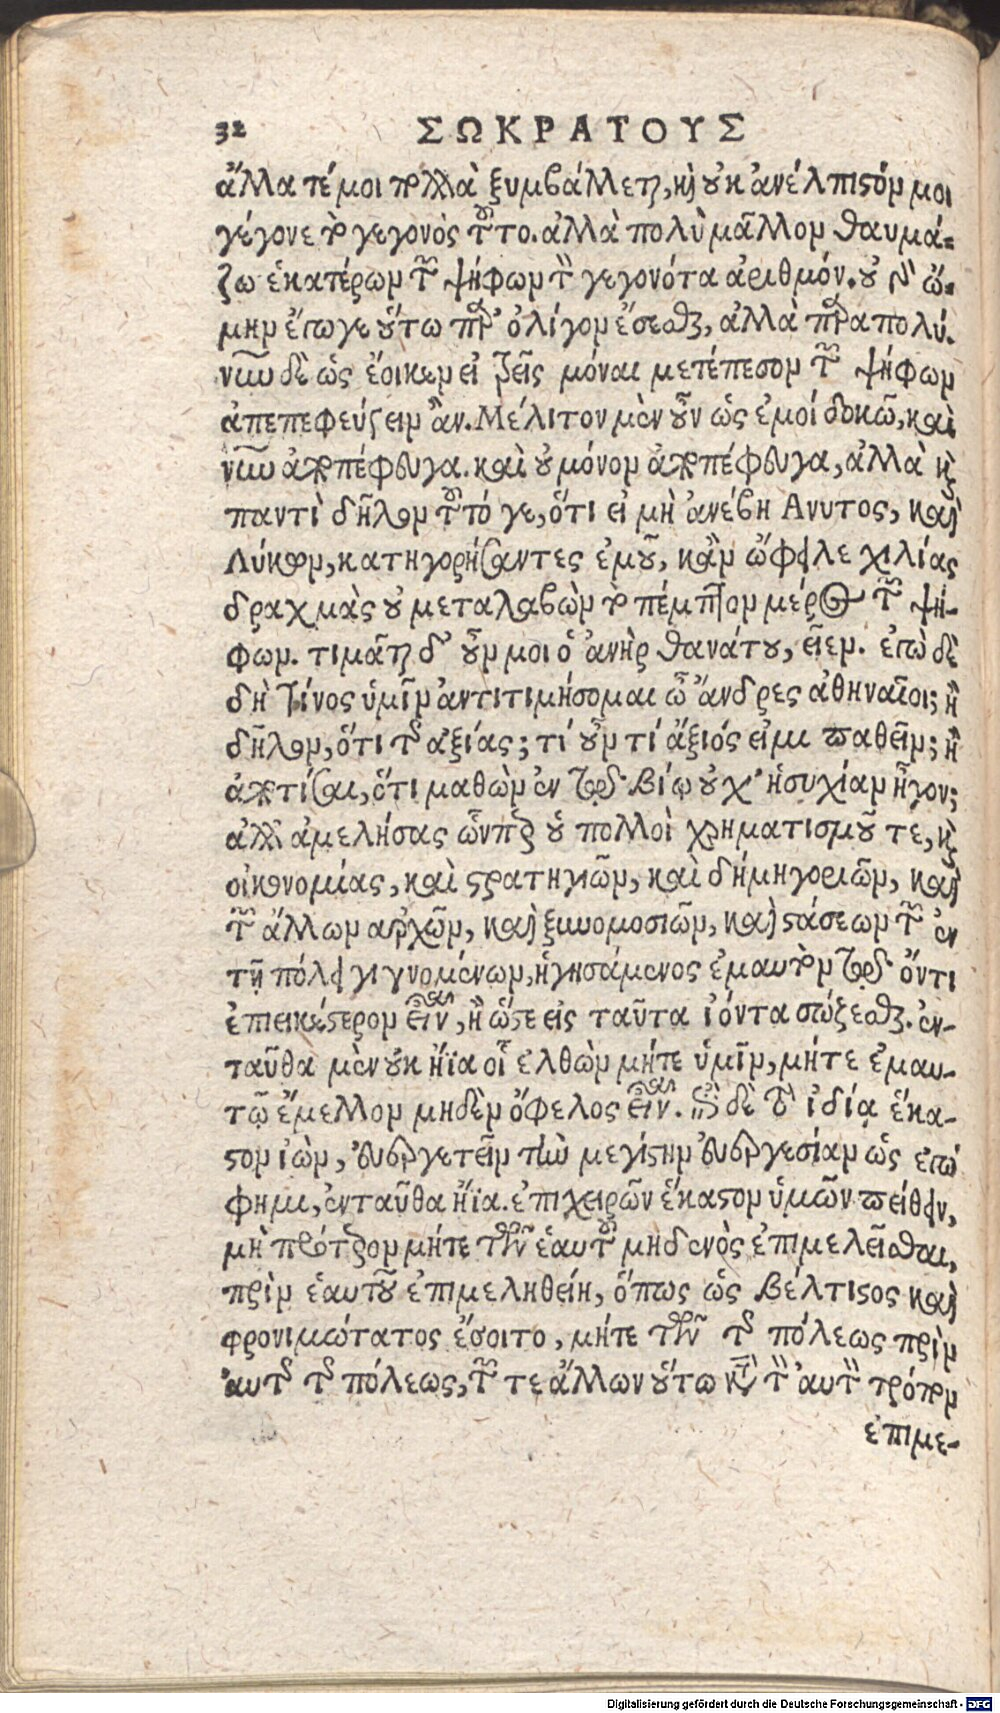 32 ΣΩΚΡΑΤΟΥΣ
ἄλλα τέ μοι πολλὰ ξυμβάλλεται, καὶ οὐκ ἀνέλπιστόν μοι
γέγονε τὸ γεγονὸς τοῦτο. ἀλλὰ πολὺ μᾶλλον θαυμά-
ζω ἑκατέρων τῶν ψήφων τὸν γεγονότα ἀριθμόν. οὐ γὰρ ᾤ-
μην ἔγωγε οὕτω παρ' ὀλίγον ἔσεσθαι, ἀλλὰ παρὰ πολύ.
νῦν δὲ ὡς ἔοικεν εἰ τρεῖς μόναι μετέπεσον τῶν ψήφων
ἀπεπεφεύγειν ἄν. Μέλιτον μὲν οὖν ὡς ἐμοί δοκῶ, καὶ
νῦν ἀποπέφευγα. καὶ οὐ μόνον ἀποπέφευγα, ἀλλὰ καὶ
παντὶ δῆλον τοῦτό γε, ὅτι εἰ μὴ ἀνέβη Ανυτος, καὶ
Λύκων, κατηγορήσαντες ἐμοῦ, κἂν ὤφλε χιλίας
δραχμὰς οὐ μεταλαβὼν τὸ πέμπτον μέρος τῶν ψή-
φων. τιμᾶται δ' οὖν μοι ὁ ἀνὴρ θανάτου, εἶεν. ἐγὼ δὲ
δὴ τίνος ὑμῖν ἀντιτιμήσομαι ὦ ἄνδρες ἀθηναῖοι; ἢ
δῆλον, ὅτι τῆς ἀξίας; τί οὖν τί ἄξιός εἰμι παθεῖν; ἢ
ἀποτίσαι, ὅτι μαθὼν ἐν τῷ βίῳ οὐχ' ἡσυχίαν ἦγον;
ἀλλ' ἀμελήσας ὧνπερ οὑ πολλοὶ χρηματισμοῦ τε, καὶ
οἰκονομίας, καὶ στρατηγιῶν, καὶ δήμηγοριῶν, καὶ
τῶν ἄλλων ἀρχῶν, καὶ ξυνομοσιῶν, καὶ στάσεων τῶν ἐν
τῇ πόλει γιγνομένων, ἡγησάμενος ἐμαυτὸν τῷ ὄντι
ἐπιεικέστερον εἶναι, ἢ ὥστε εἰς ταῦτα ἰόντα σώζεσθαι. ἐν-
ταῦθα μὲν οὐκ ἤϊα οἷ ἐλθὼν μήτε ὑμῖν, μήτε ἐμαυ-
τῷ ἔμελλον μηδὲν ὄφελος εἶναι. ἐπὶ δὲ τὸ ἰδίᾳ ἕκα-
στον ἰὼν, εὐεργετεῖν τὴν μεγίστην εὐεργεσίαν ὡς ἐγώ
φημι, ἐνταῦθα ἤϊα. ἐπιχειρῶν ἕκαστον ὑμῶν πείθειν,
μὴ πρότερον μήτε τῶν ἑαυτοῦ μηδενὸς ἐπιμελεῖσθαι,
πρὶν ἑαυτοῦ ἐπιμεληθείη, ὅπως ὡς βέλτιστος καὶ
φρονιμώτατος ἔσοιτο, μήτε τῶν τῆς πόλεως πρὶν
αὐτῆς τῆς πόλεως, τῶν τε ἄλλων οὕτω κατὰ τὸν αὐτὸν τρόπον
ἐπιμε-
Digitalisierung gefördert durch die Deutsche Forschungsgemeinschaft - DFG